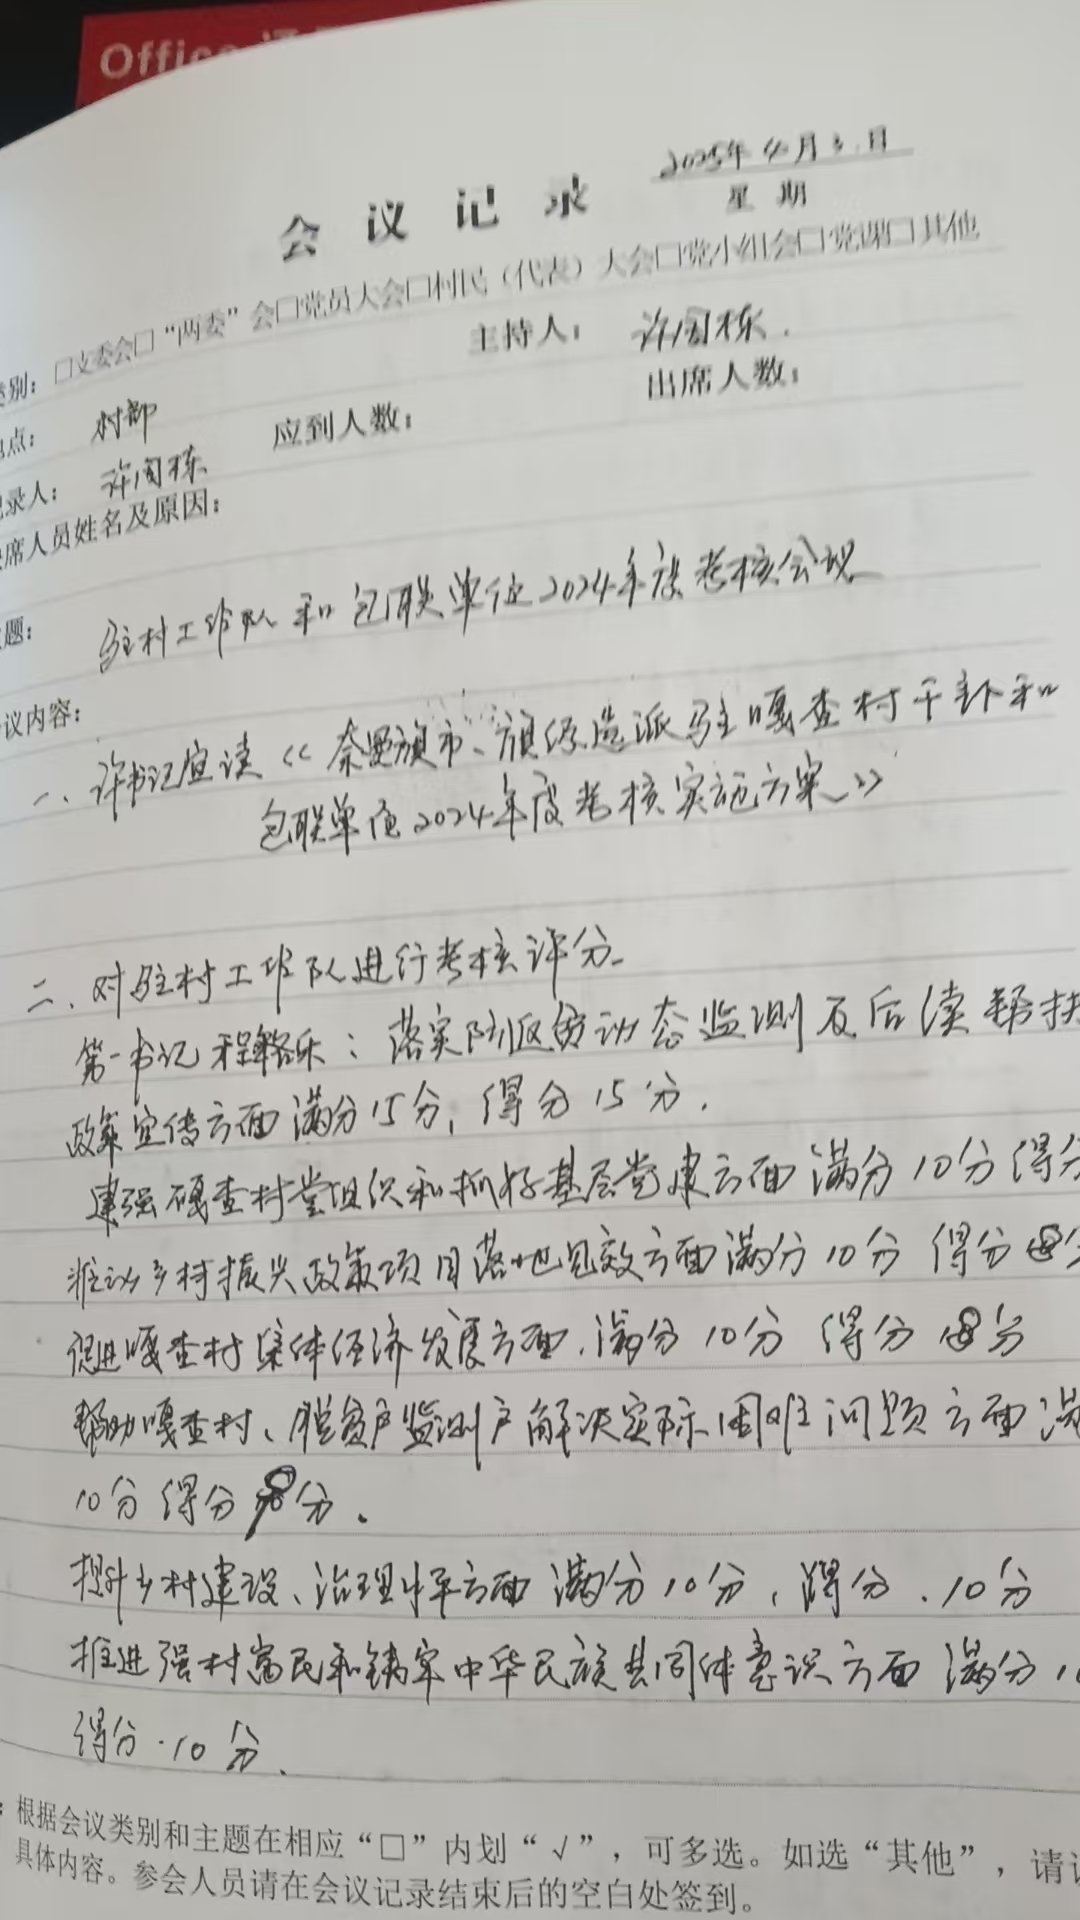 Office
2025年4月3日
会议记录
星期
类别：□支委会□“两委”会□党员大会□村民（代表）大会□党小组会□党课□其他
主持人：许国栋.
点： 村部 应到人数： 出席人数：
录人： 许国栋
席人员姓名及原因：
题： 驻村工作队和包联单位2024年度考核会议
议内容：
一、许书记宣读《奈曼旗市、旗级选派驻嘎查村干部和
包联单位2024年度考核实施方案》
二、对驻村工作队进行考核评分.
第一书记程：落实防返贫动态监测及后续帮扶
政策宣传方面满分15分，得分15分.
建强嘎查村党组织和抓好基层党建方面满分10分得分
推动乡村振兴政策项目落地见效方面满分10分 得分8分
促进嘎查村集体经济发展方面.满分10分 得分8分
帮助嘎查村、脱贫户监测户解决实际困难问题方面满
10分得分8分.
提升乡村建设、治理水平方面满分10分，得分.10分
推进强村富民和铸牢中华民族共同体意识方面满分10
得分.10分.
：根据会议类别和主题在相应“□”内划“√”，可多选。如选“其他”，请
具体内容。参会人员请在会议记录结束后的空白处签到。